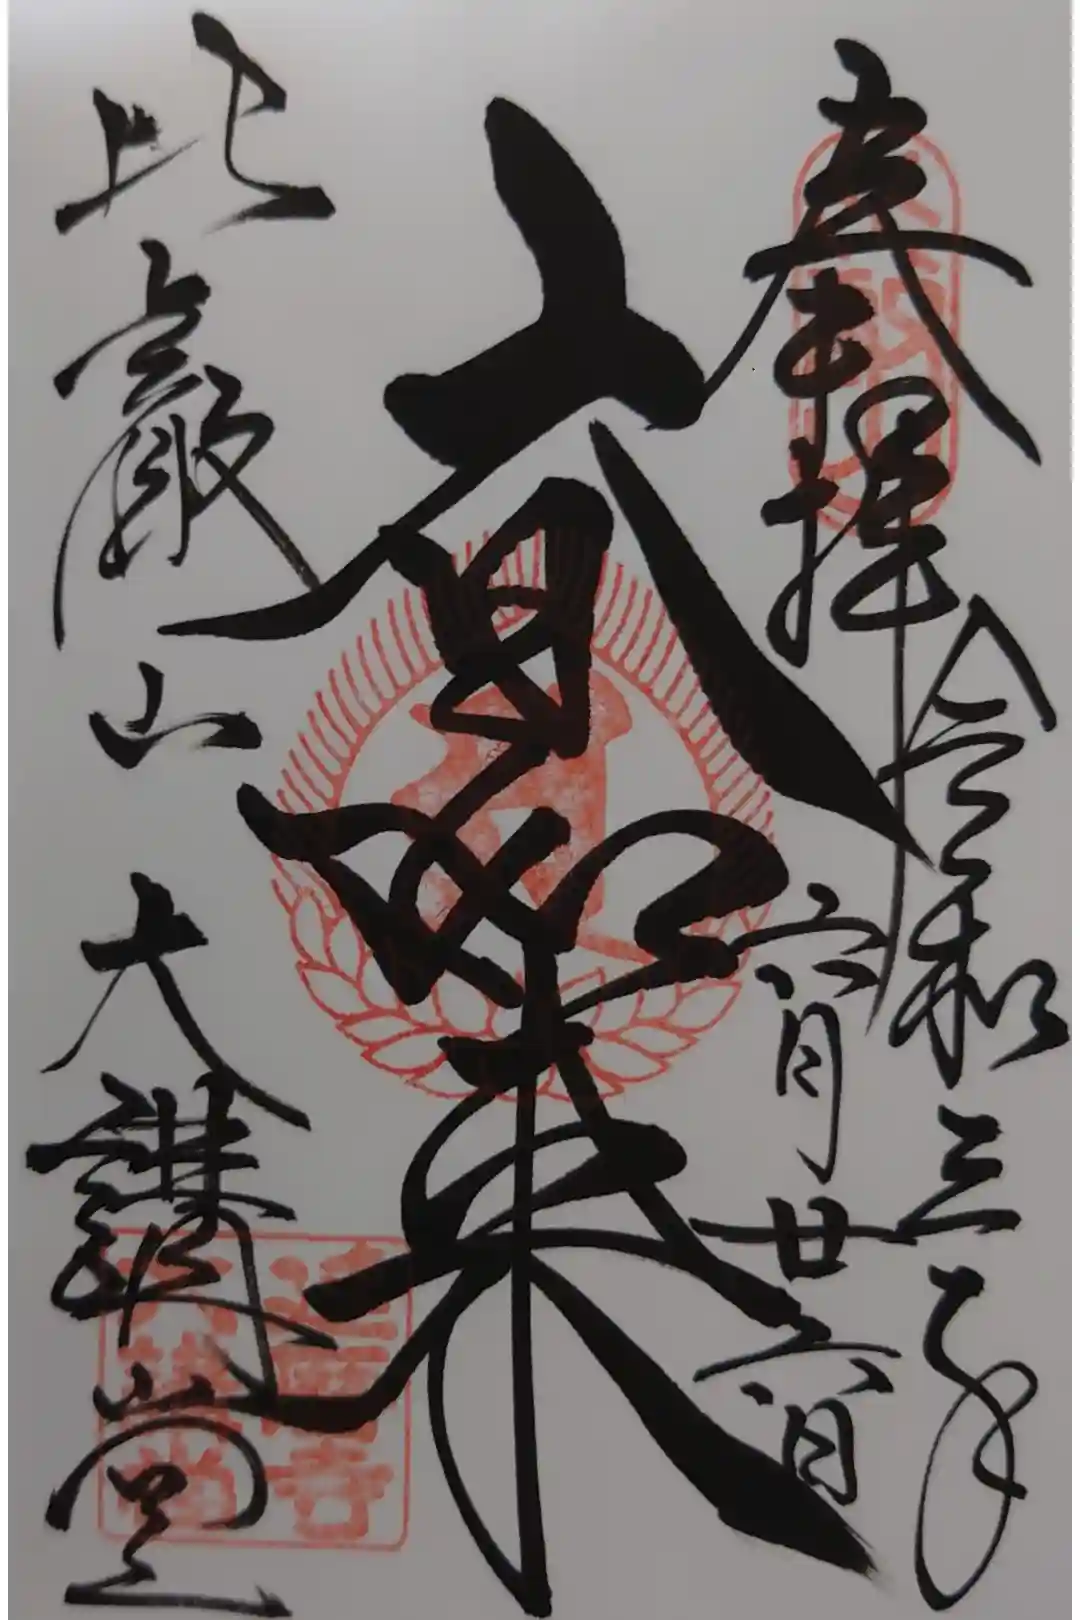 奉拝
令和三年
六月廿六日
大日如来
比叡山
大講堂
延暦寺
大講堂